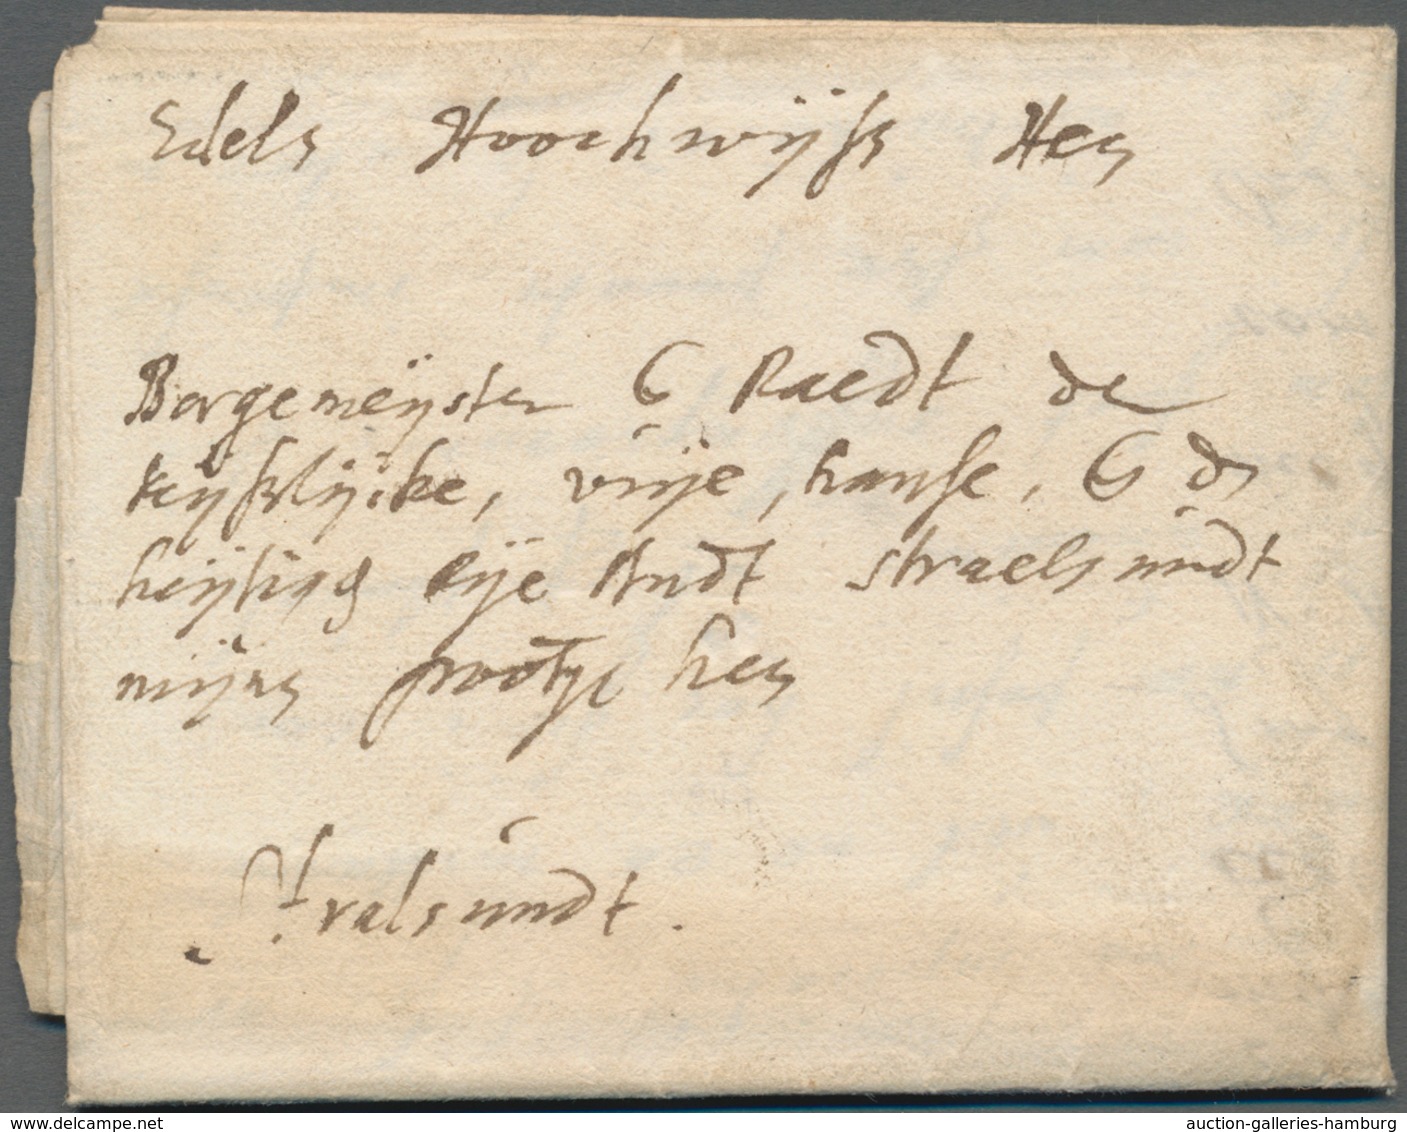 Edels Hoochwÿse Hey
Borgemeÿster & Raedt de
keÿslÿcke, vrÿe, hanse, & de
heÿlig rÿe Stadt Straelsundt
mÿns grootge hey
Stralsundt.
www.delcampe.net
auction-galleries-hamburg